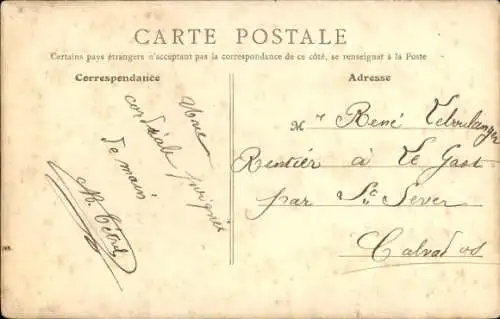 CARTE POSTALE
Certains pays étrangers n'acceptant pas la correspondance de ce côté, se renseignat à la Poste
Correspondance
Adresse
Une
cordiale poignée
de main
Mr René Leboulanger
Rentier à Le Gast
par St Sever
Calvados